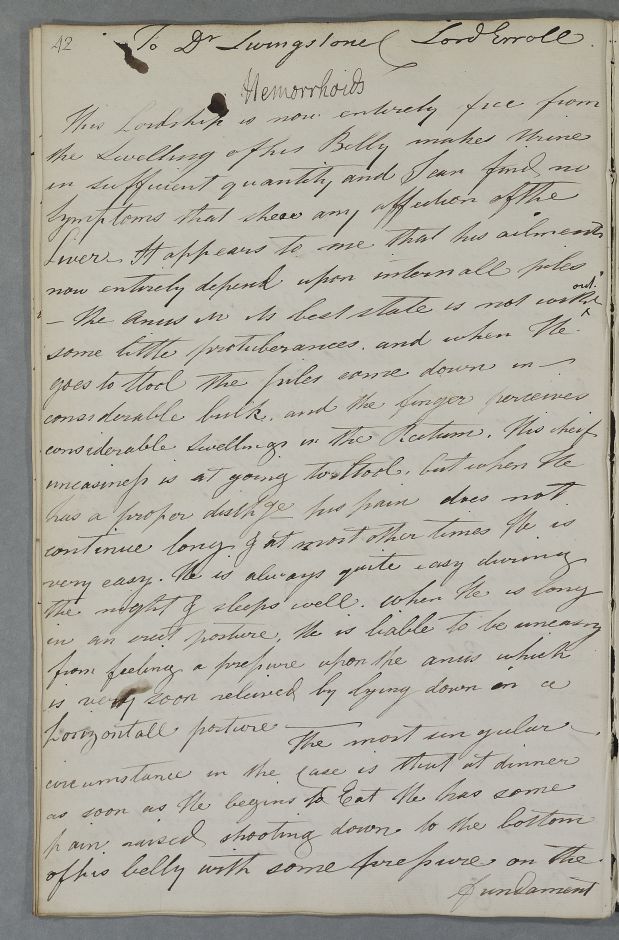 42
To Dr Livingstone (Lord Erroll.
Hemorrhoids
This Lordship is now entirely free from
the Swelling of his Belly makes Urine
in sufficient quantity and I can find no
Symptoms that shew any affection of the
Liver. It appears to me that his ailments
now entirely depend upon internall piles
– the Anus in its best state is not without
some little protuberances. and when He
goes to Stool the piles come down in
considerable bulk. and the finger perceives
considerable Swellings in the Rectum. His cheif
uneasiness is at going to Stool. but when He
has a proper dischge his pain does not
continue long & at most other times He is
very easy. He is always quite easy during
the night & sleeps well. when He is long
in an erect posture, He is liable to be uneasy
from feeling a pressure upon the anus which
is very soon releived by lying down in a
horizontall posture — The most singular
circumstance in the Case is that at dinner
as soon as He begins to Eat He has some
pain raised shooting down to the bottom
of his belly with some pressure on the
Fundament